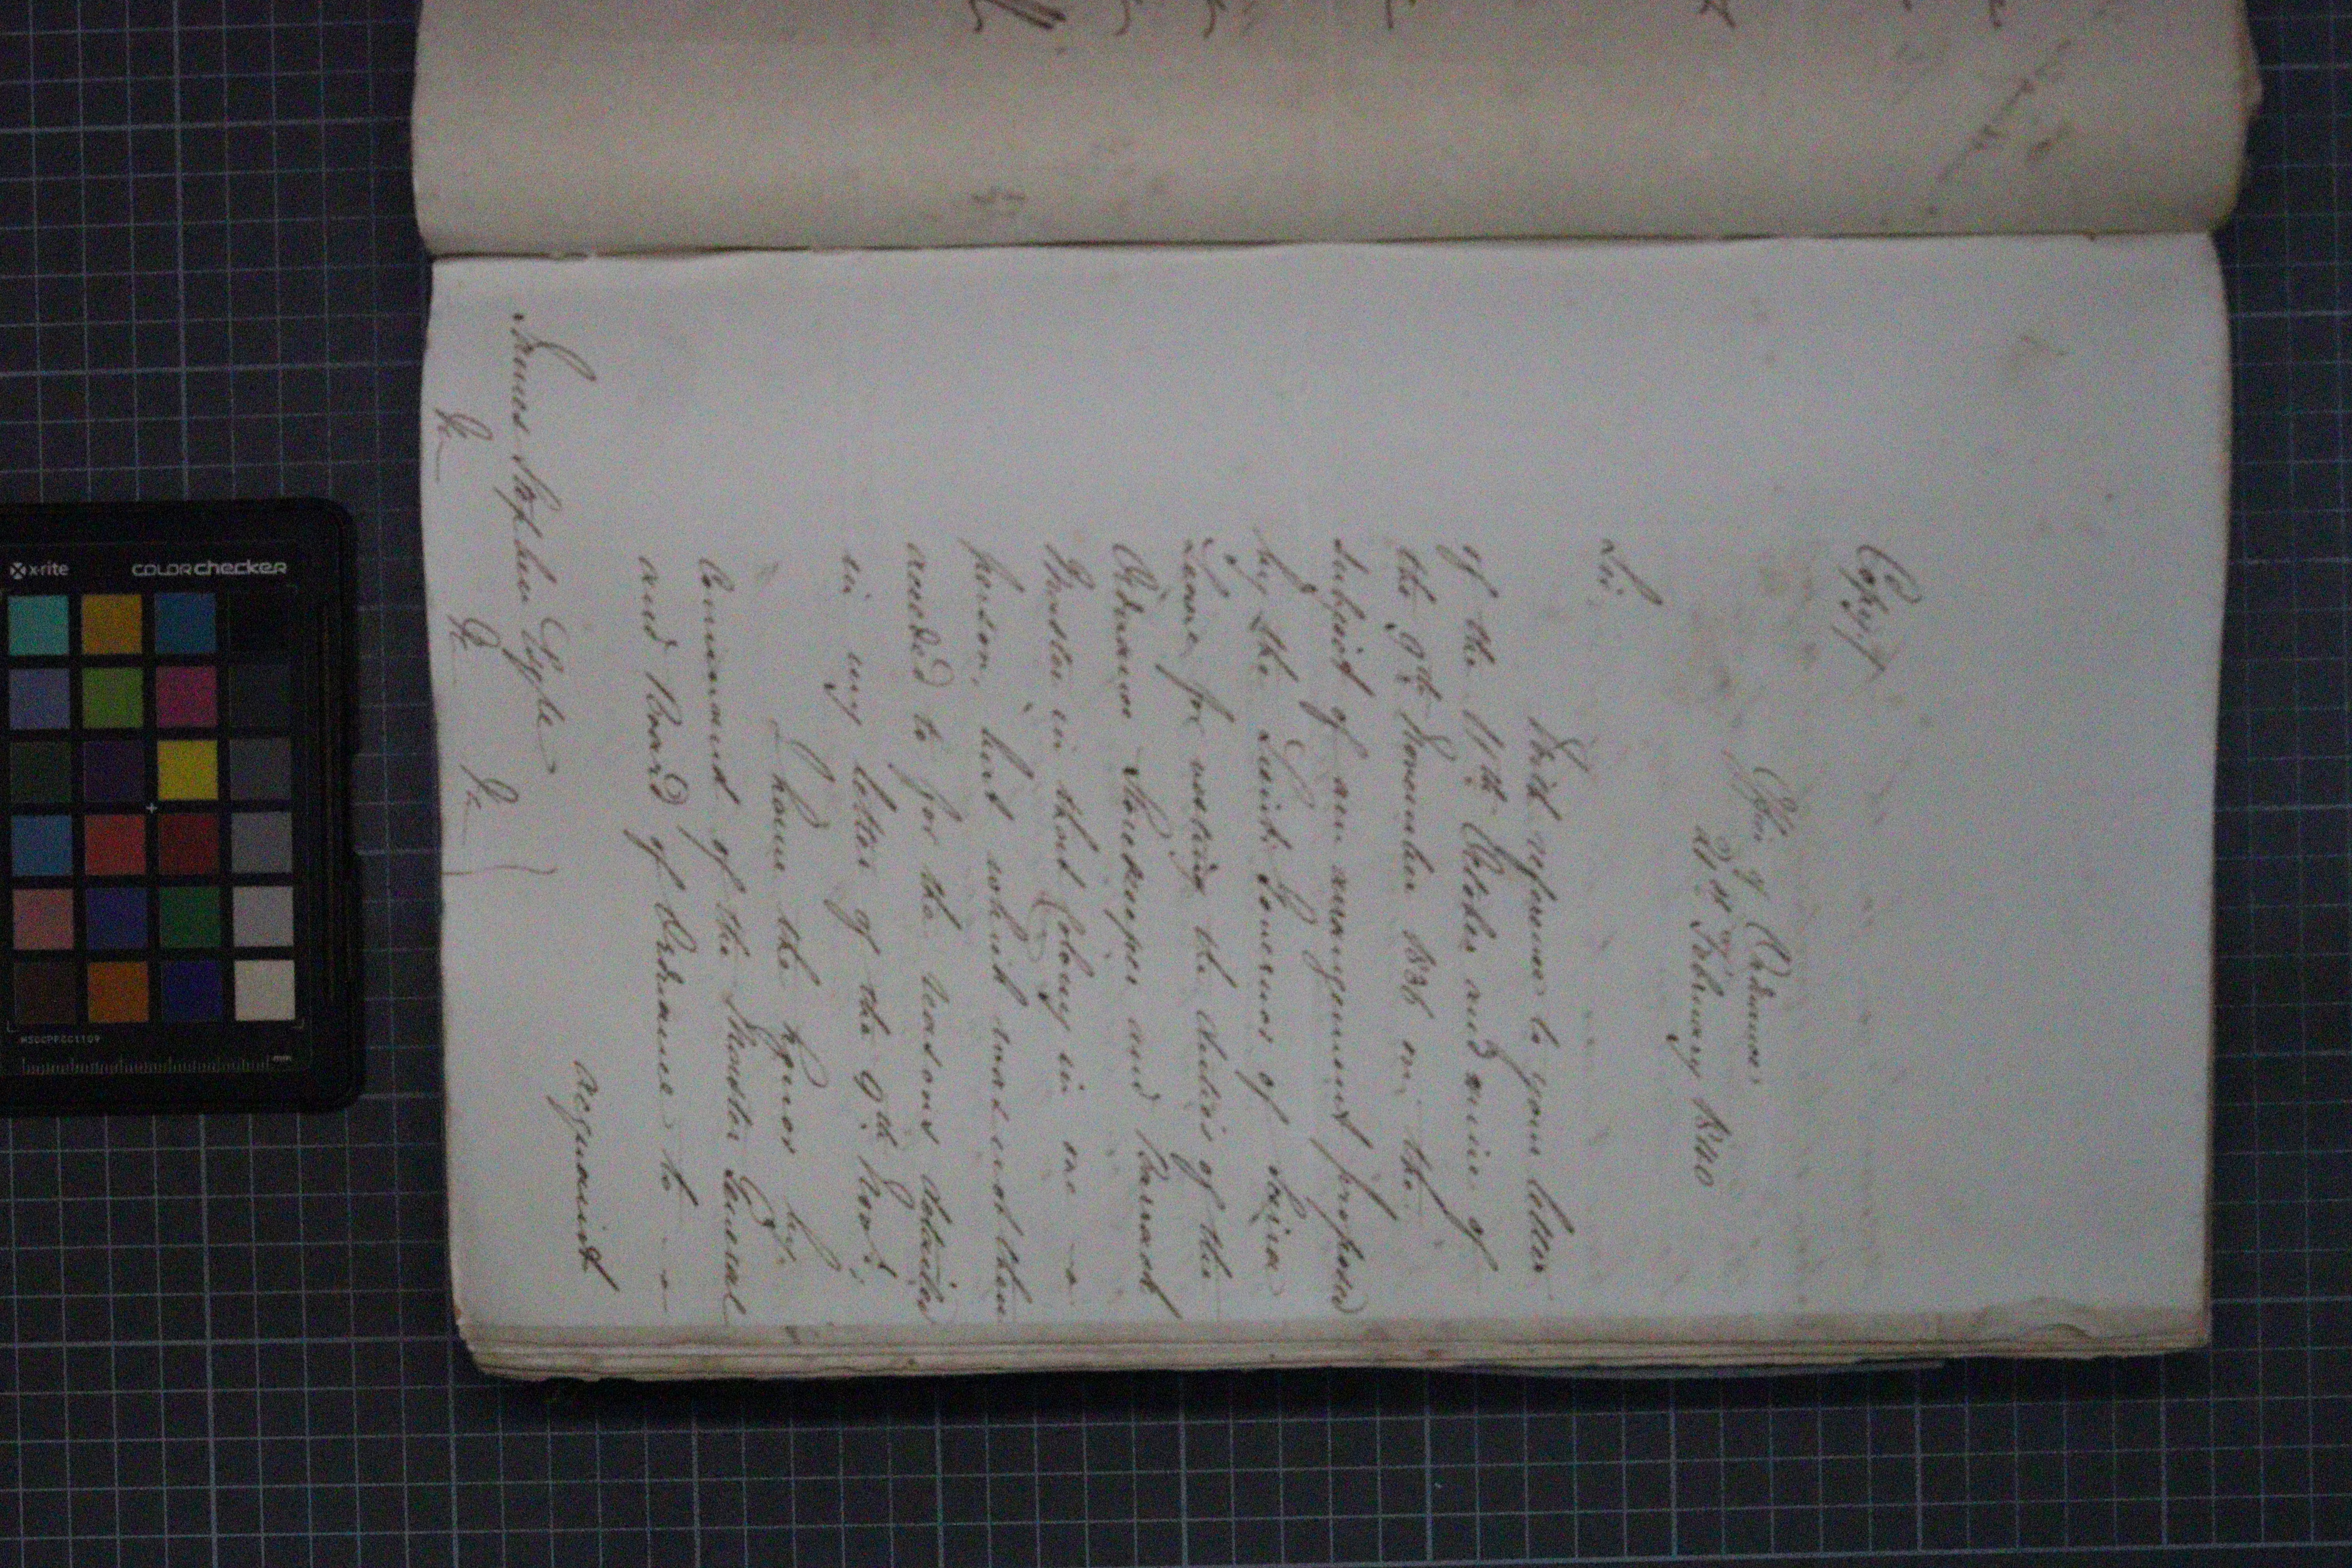 Copy
Office of Ordnance
21st February 1840
Sir,
With reference to your letter
of the 11th October and mine of
the 9th November 1838 on the
subject of an arrangement proposed
by the Lieut. Governor of Sierra
Leone for uniting the duties of the
Ordnance Storekeeper and Barrack
Master in that Colony in one
person, but which was not then
acceded to for the reasons detailed
in my letter of the 9th Novr.;
I have the honor by
Command of the Master General
and Board of Ordnance to
acquaint
James Stephen Esqre
&c &c &c
x-rite colorchecker
MSCCPPCC1109
mm